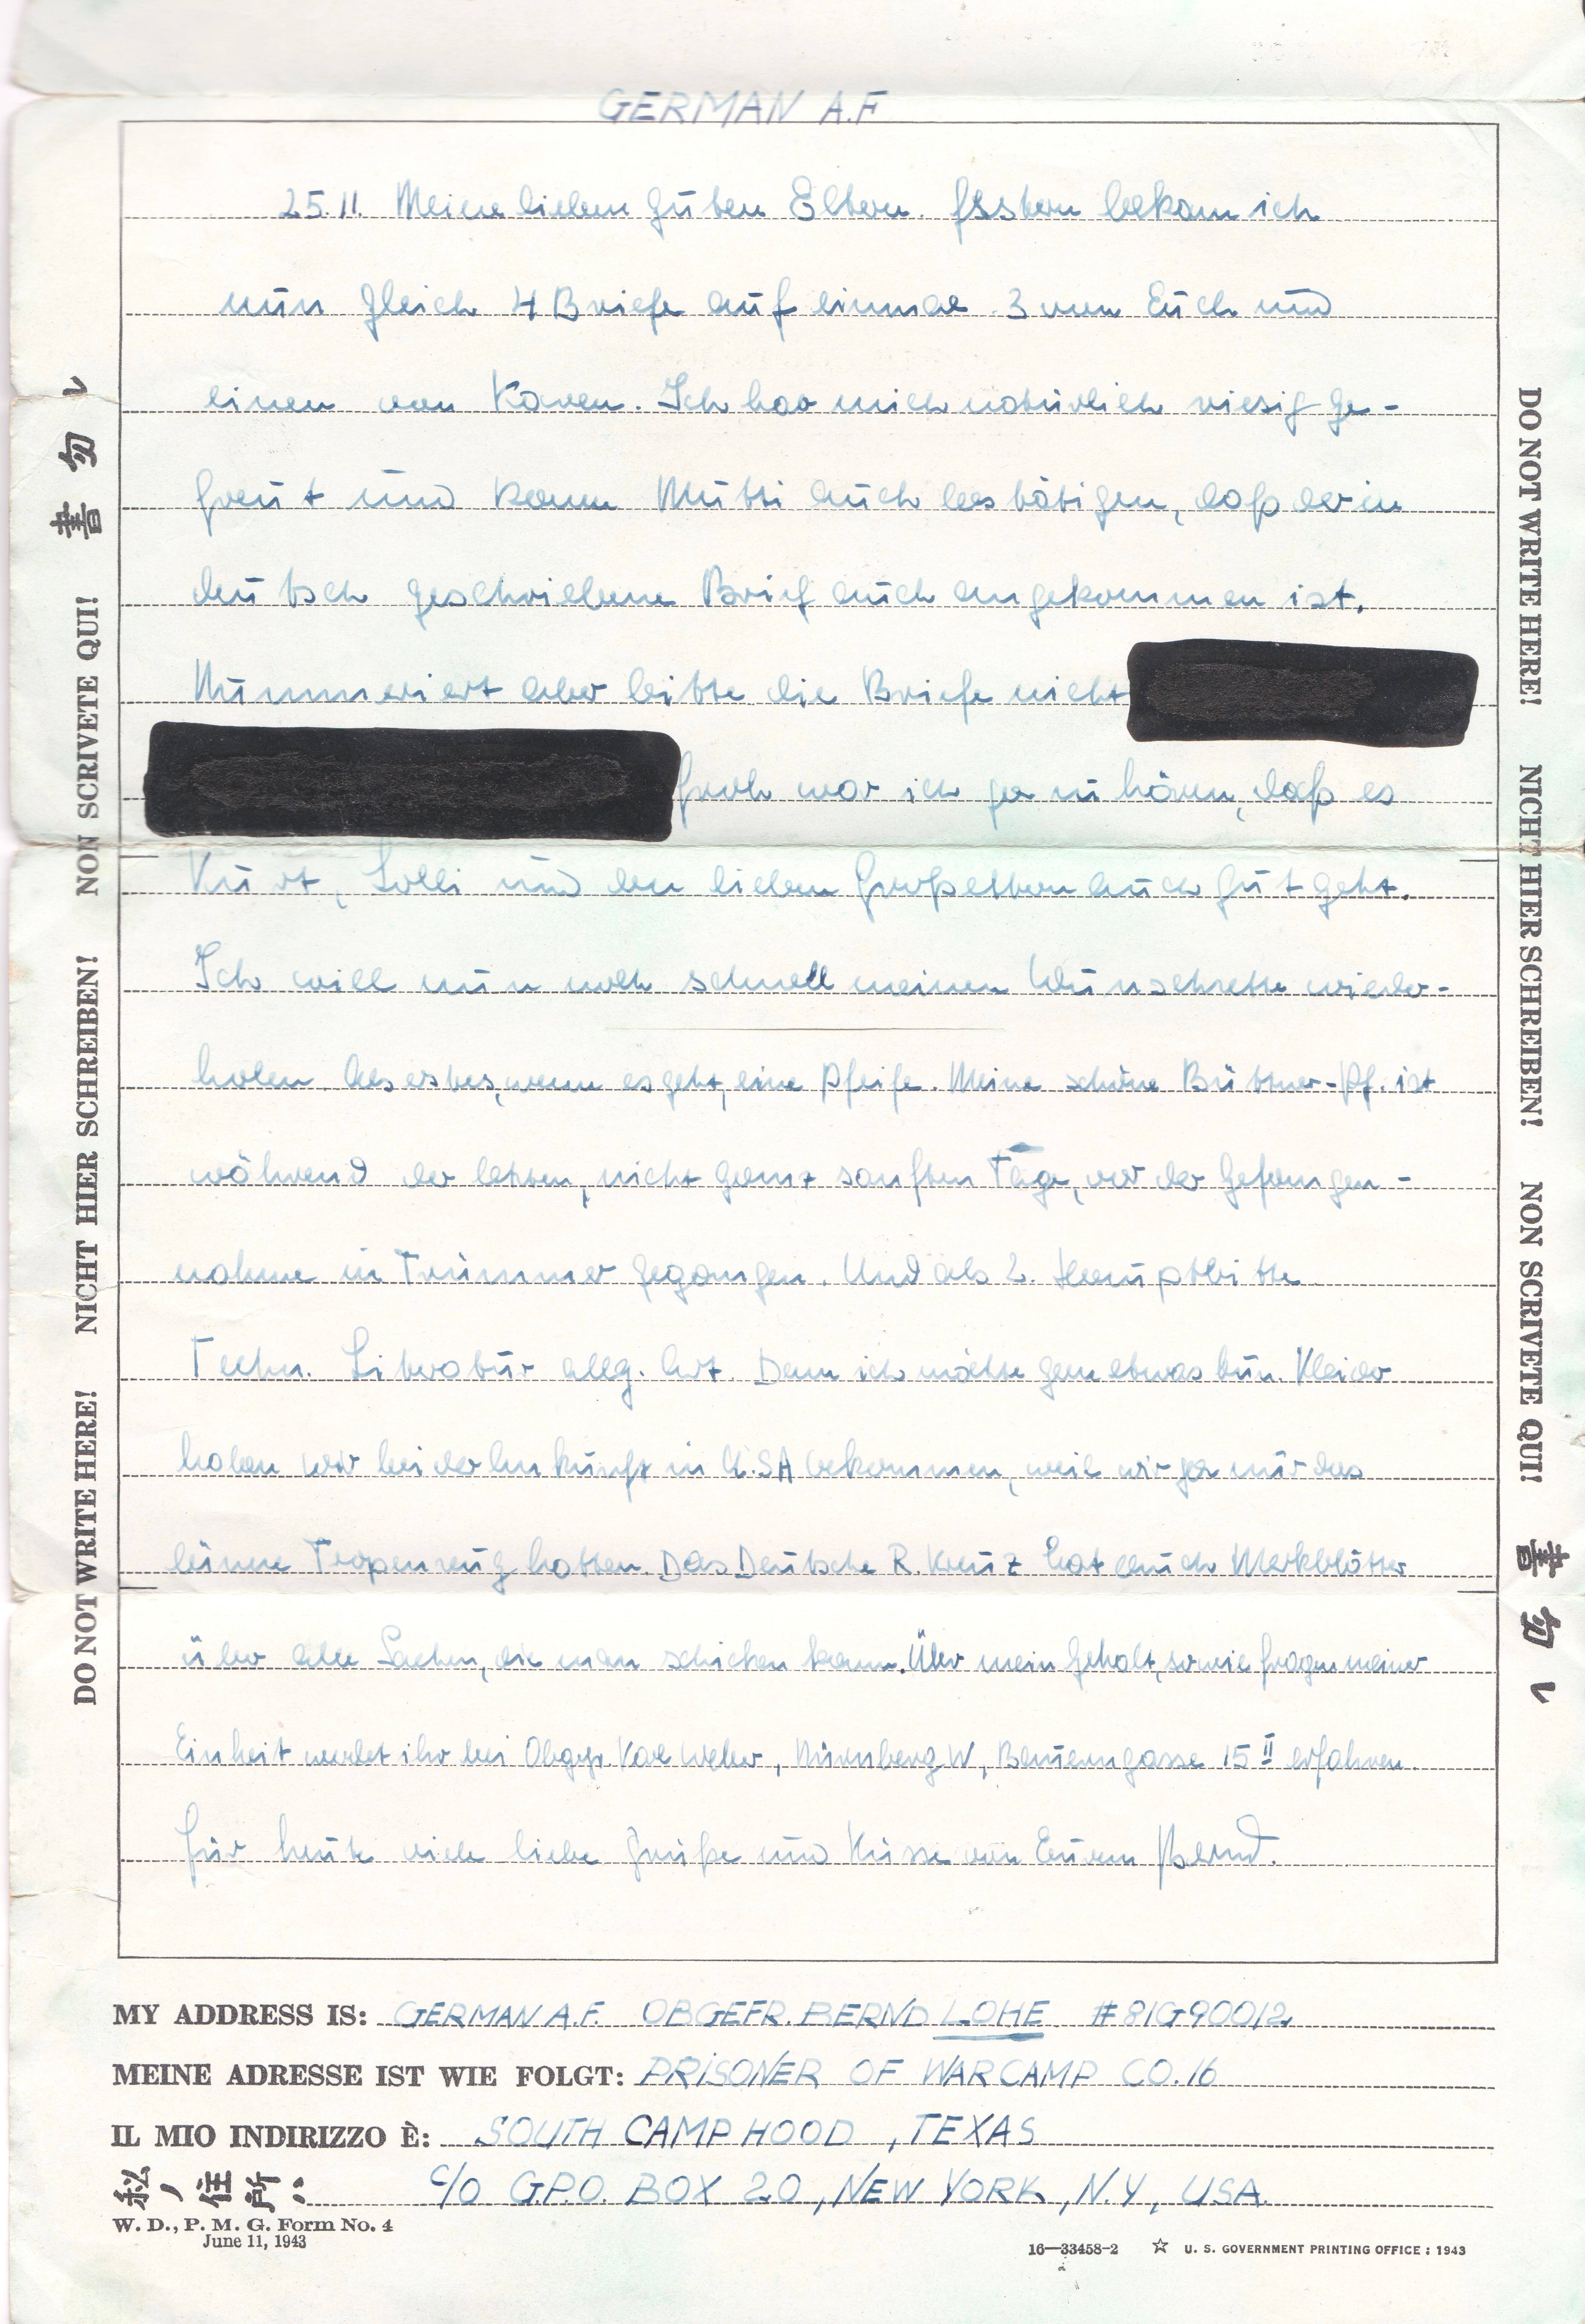 GERMAN A.F
25.11. Meine lieben guten Eltern. Gestern bekam ich
nun gleich 4 Briefe auf einmal. 3 von Euch und
einen von Karen. Ich hab mich natürlich riesig ge-
freut und kann Mutti auch bestätigen, daß der in
deutsch geschriebene Brief auch angekommen ist.
Nummeriert aber bitte die Briefe nicht
froh war ich ja zu hören, daß es
Kurt, Lolli und den lieben Großeltern auch gut geht.
Ich will nun noch schnell meinen wieder-
holen. Als erstes, wenn es geht, eine Pfeife. Meine schöne Büttner-Pf. ist
während der letzten, nicht ganz sanften Tage, vor der Gefangen-
nahme in Trümmer gegangen. Und als 2. Hauptbitte
Techn. Literatur allg. Art. Denn ich möchte gern etwas tun. Kleider
haben wir bei der Ankunft in U.SA bekommen, weil wir ja nur das
dünne Tropenzeug hatten. Das Deutsche R. Kreuz hat auch Merkblätter
über alle Sachen, die man schicken kann. Über mein Gehalt, sowie Fragen meiner
Einheit werdet ihr bei Karl Weber, Nürnberg W, 15 II erfahren.
Für heute viele liebe Grüße und Küsse von Eurem Bernd.
MY ADDRESS IS: GERMAN A.F. OBGEFR. BERND LOHE #81G90012
MEINE ADRESSE IST WIE FOLGT: PRISONER OF WAR CAMP CO. 16
IL MIO INDIRIZZO È: SOUTH CAMP HOOD, TEXAS
私ノ住所: C/O G.P.O. BOX 20, NEW YORK, N.Y., USA.
W. D., P. M. G. Form No. 4
June 11, 1943
16—33458-2 ☆ U. S. GOVERNMENT PRINTING OFFICE : 1943
DO NOT WRITE HERE! NICHT HIER SCHREIBEN! NON SCRIVETE QUI! 書勿レ
DO NOT WRITE HERE! NICHT HIER SCHREIBEN! NON SCRIVETE QUI! 書勿レ